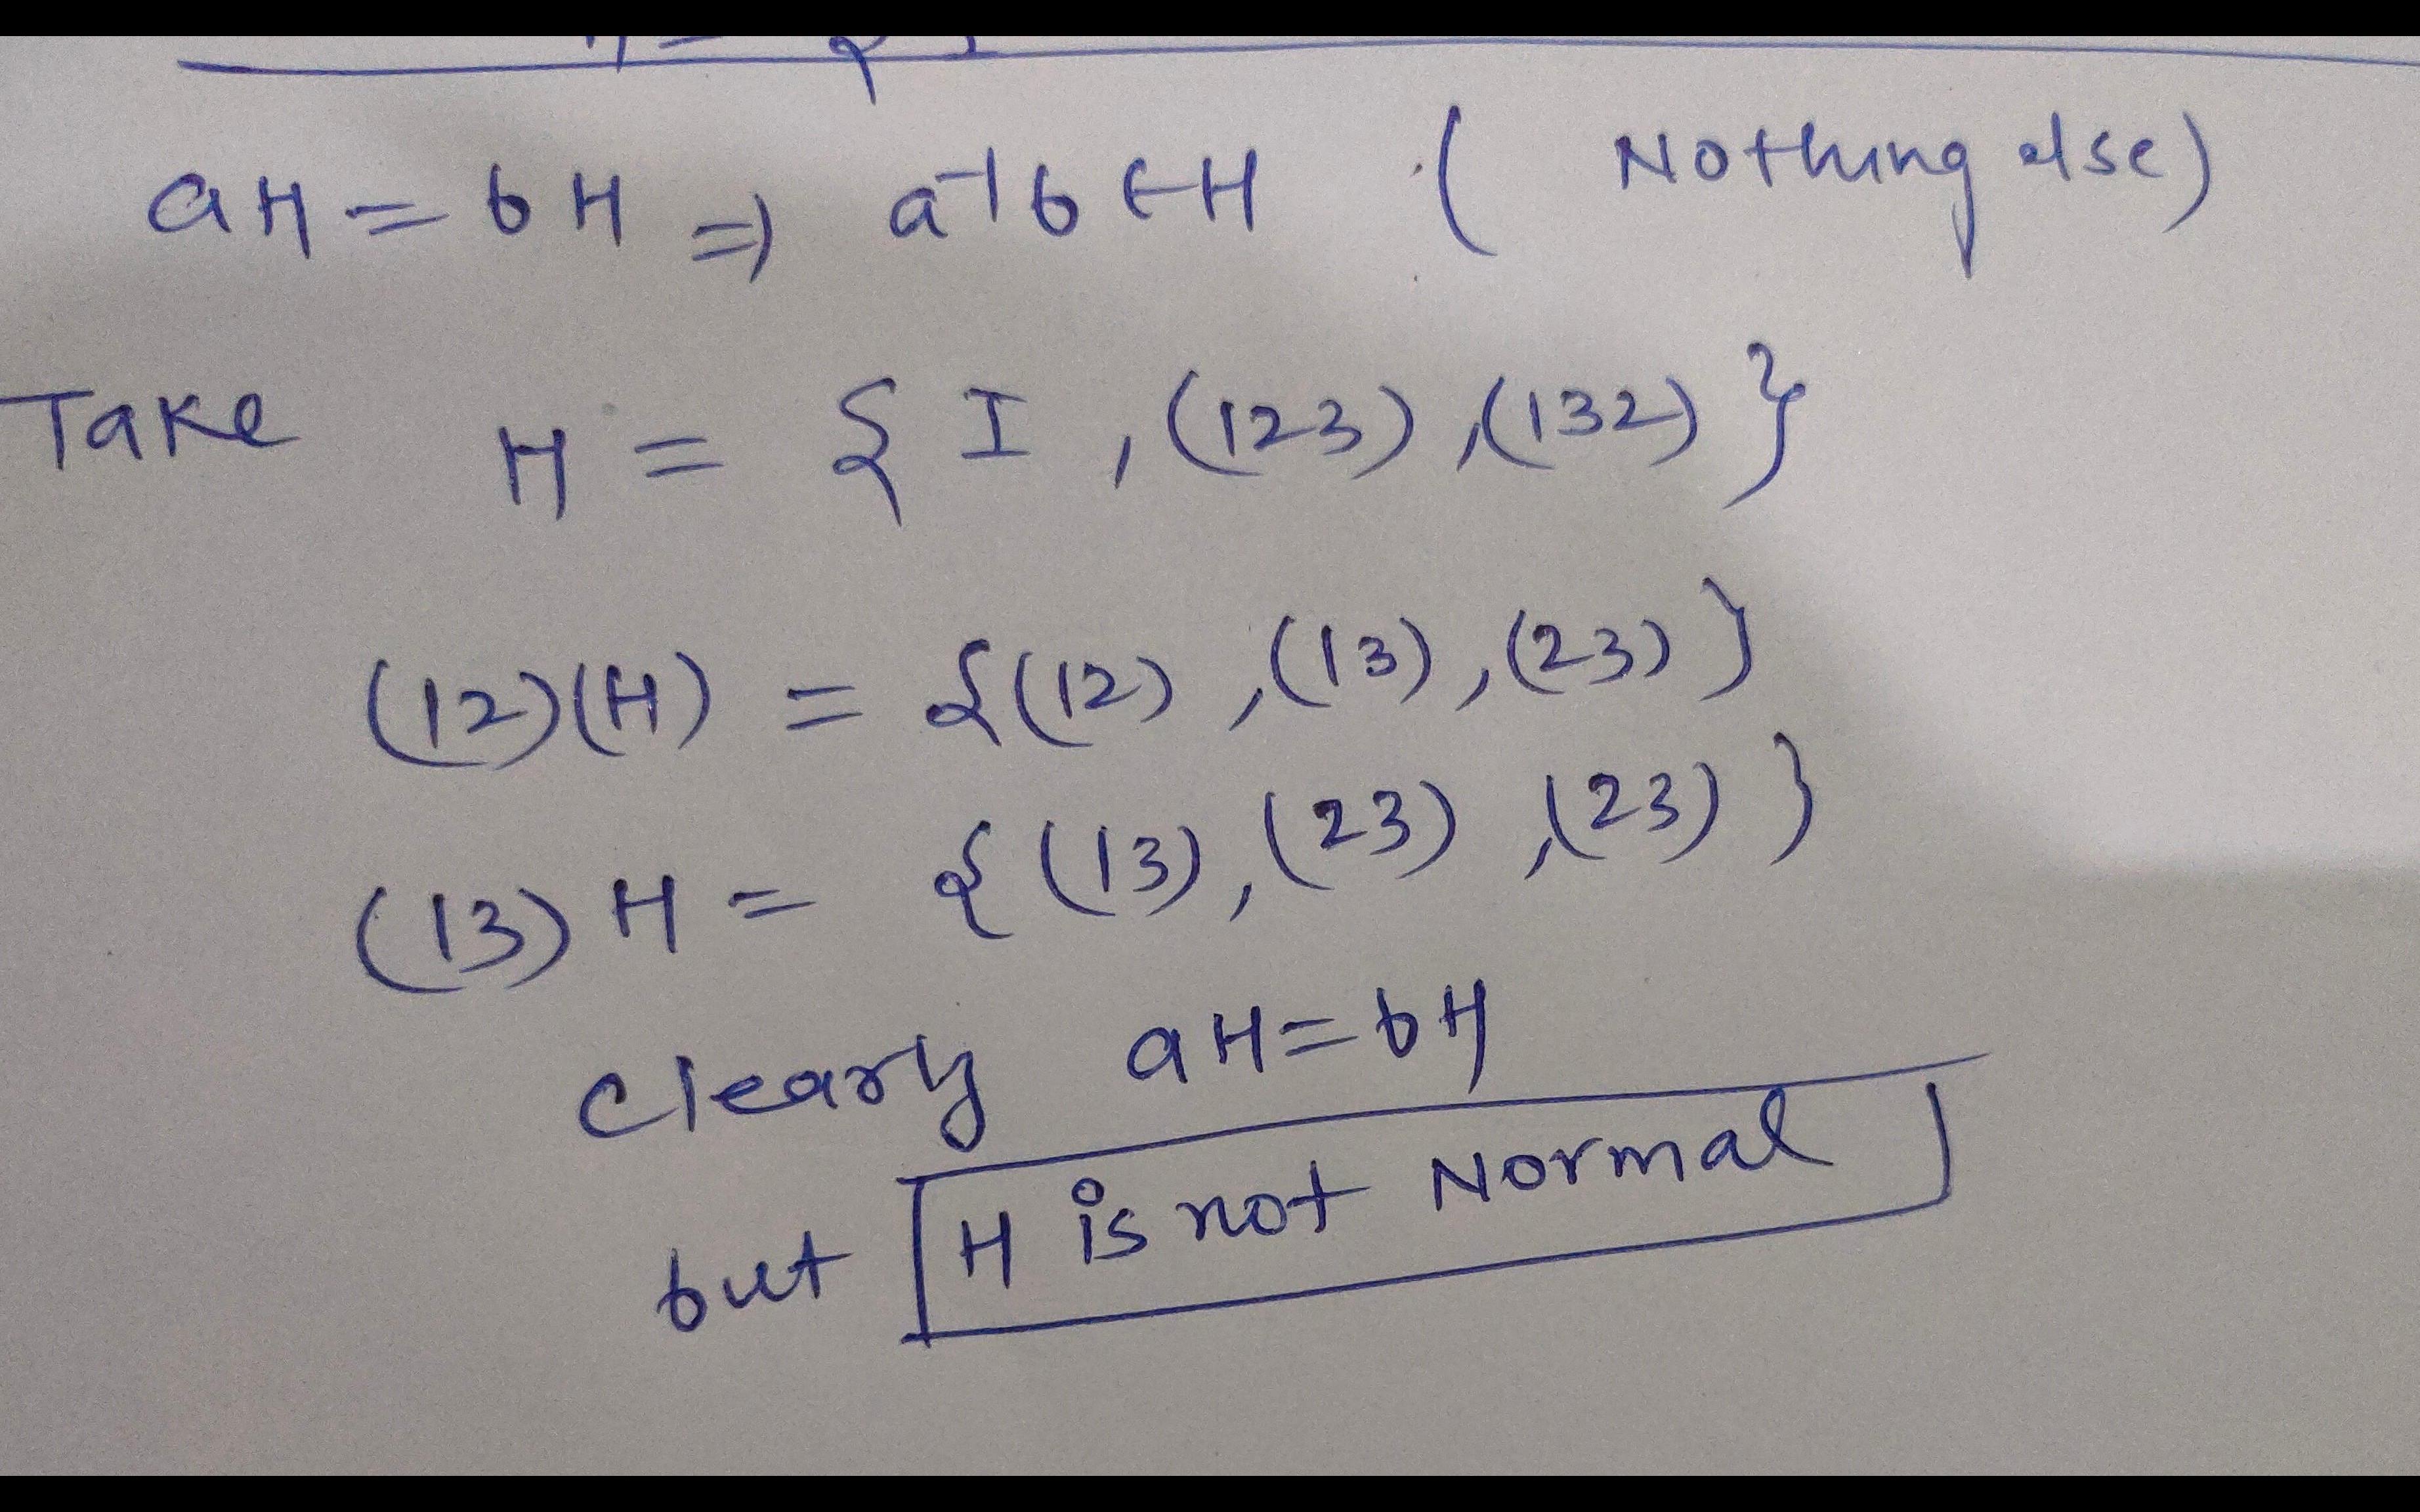 aH = bH ⇒ a⁻¹b ∈ H ( Nothing else)
Take H = { I , (123) , (132) }
(12)(H) = {(12) , (13) , (23) }
(13) H = { (13) , (23) , (23) }
Clearly aH = bH
but H is not Normal